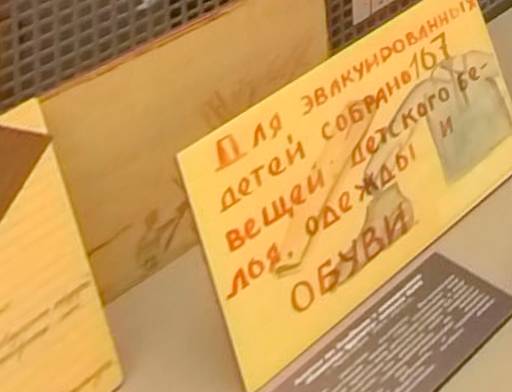 Для эвакуированных
детей собрано 167
вещей детского бе-
лья, одежды и
ОБУВИ